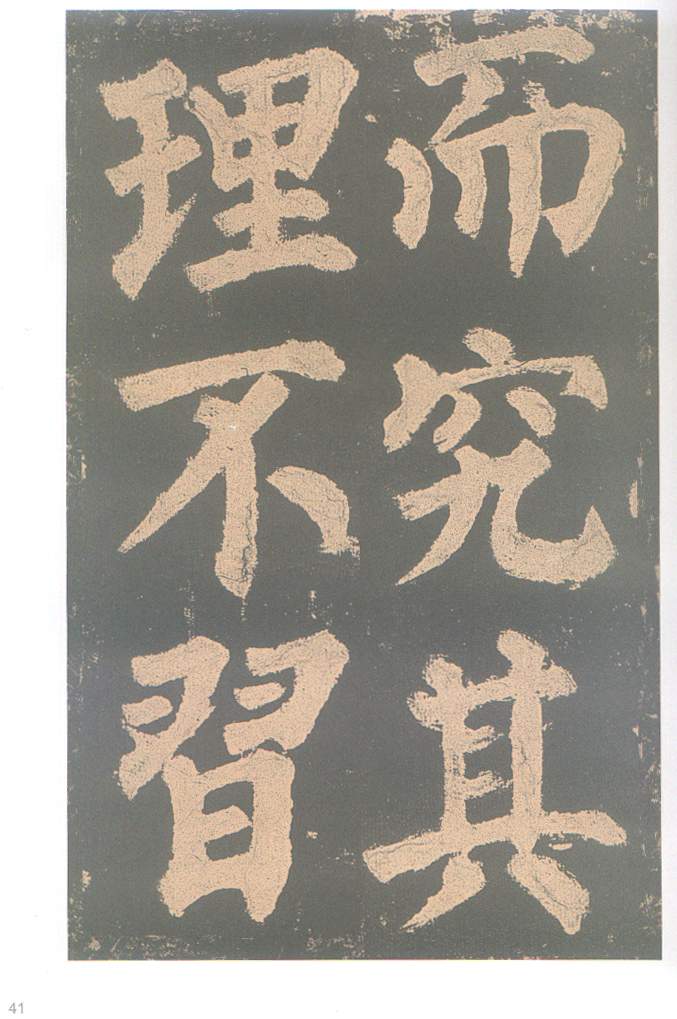 而究其
理不習
41